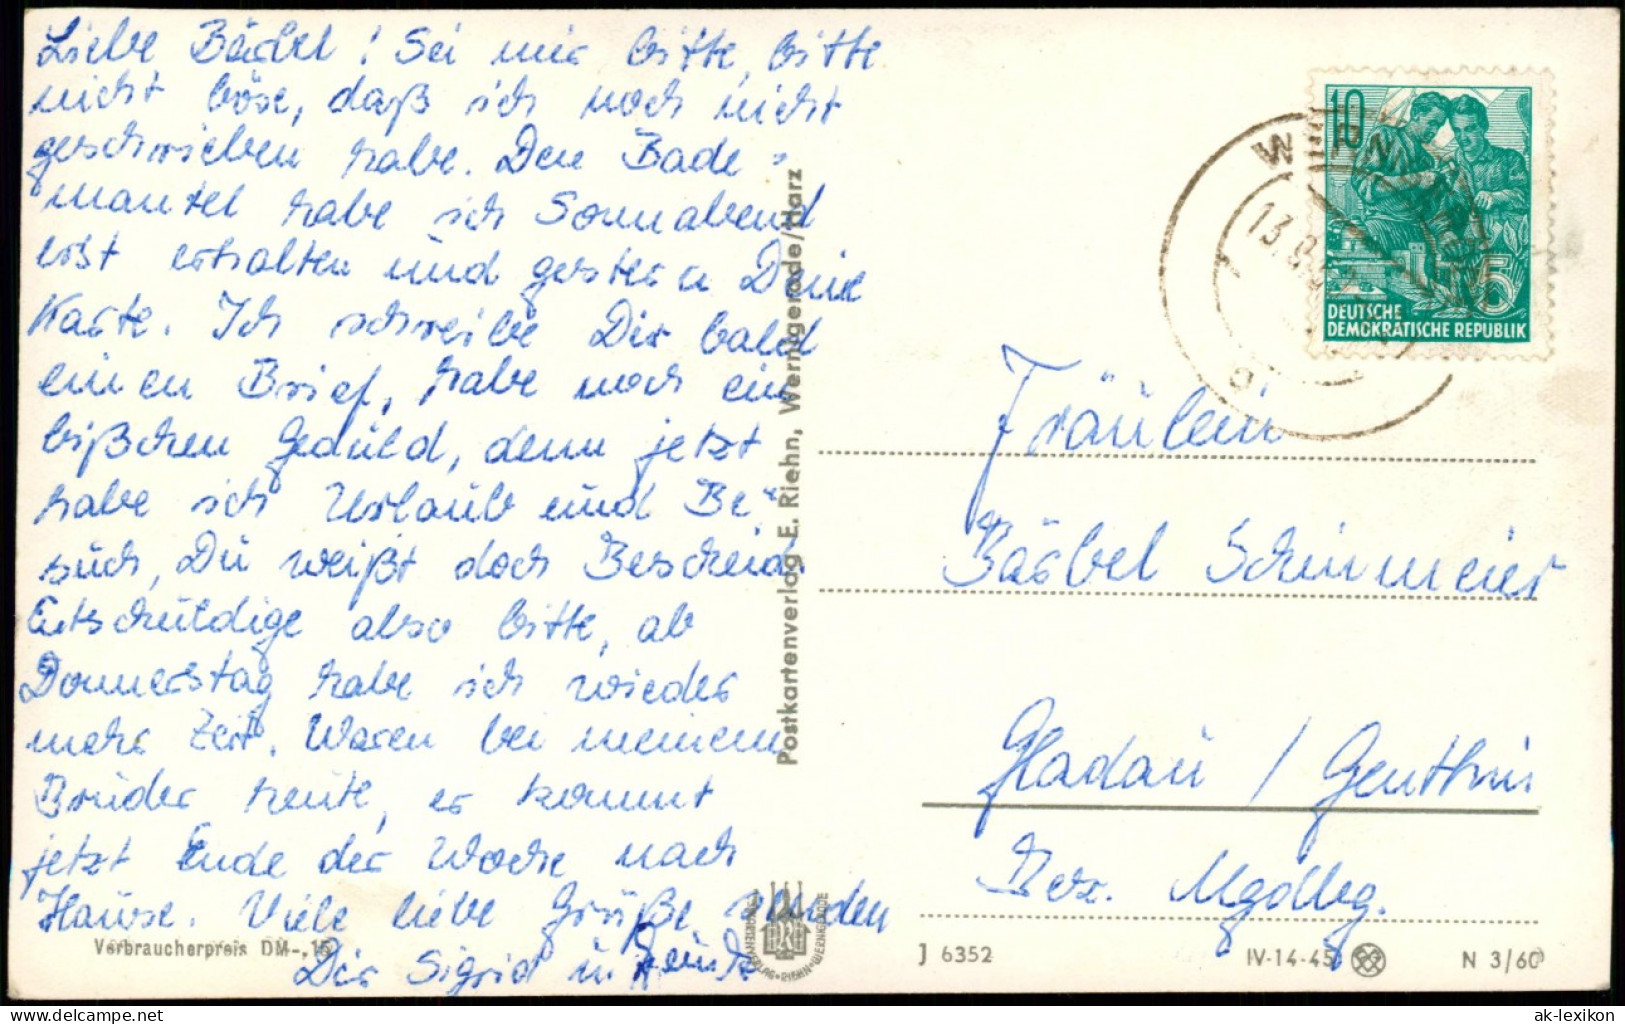 Liebe Bärbel! Sei mir bitte, bitte
nicht böse, daß ich noch nicht
geschrieben habe. Den Bade-
mantel habe ich Sonnabend
erst erhalten und gestern Deine
Karte. Ich schreibe Dir bald
einen Brief, habe noch ein
bißchen Geduld, denn jetzt
habe ich Urlaub und Be-
such, Du weißt doch Bescheid.
Entschuldige also bitte, ab
Donnerstag habe ich wieder
mehr Zeit. Waren bei meinem
Bruder heute, er kommt
jetzt Ende der Woche nach
Hause. Viele liebe Grüße senden
Dir Sigrid u.
Verbraucherpreis DM -,15
Postkartenverlag E. Riehn, Wernigerode/Harz
10
5
DEUTSCHE
DEMOKRATISCHE REPUBLIK
13.9.
Fräulein
Bärbel Schirmeier
Gladau / Genthin
Bez. Mgdbg.
J 6352
IV-14-45
N 3/60
ak-lexikon